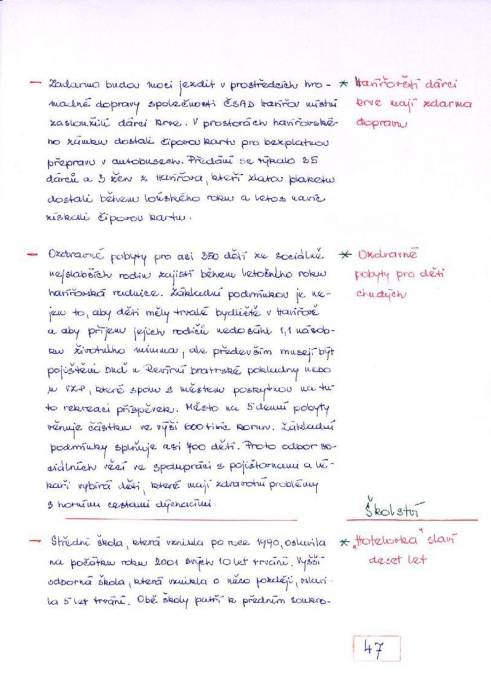 - Zadarmo budou moci jezdit v prostředcích hro-
madné dopravy společnosti ČSAD Havířov místní
zasloužilí dárci krve. V prostorách havířovské-
ho zámku dostali čipovou kartu pro bezplatnou
přepravu v autobusech. Předání se týkalo 35
dárců a 3 žen z Havířova, kteří zlatou plaketu
dostali během loňského roku a letos navíc
získali čipovou kartu.
* Havířovští dárci
krve mají zdarma
dopravu
- Ozdravné pobyty pro asi 350 dětí ze sociálně
nejslabších rodin zajistí během letošního roku
havířovská radnice. Základní podmínkou je ne-
jen to, aby děti měly trvalé bydliště v Havířově
a aby příjem jejich rodičů nedosáhl 1,1 násob-
ku životního minima, ale především musejí být
pojištěni buď u Revírní bratrské pokladny nebo
u VZP, které spolu s městem poskytnou na tu-
to rekreaci příspěvek. Město na 5 denní pobyty
věnuje částku ve výši 600 tisíc korun. Základní
podmínky splňuje asi 400 dětí. Proto odbor so-
ciálních věcí ve spolupráci s pojišťovnami a lé-
kaři vybírá děti, které mají zdravotní problémy
s horními cestami dýchacími.
* Ozdravné
pobyty pro děti
chudých
Školství
- Střední škola, která vznikla po roce 1990, oslavila
na počátku roku 2001 svých 10 let trvání. Vyšší
odborná škola, která vznikla o něco později, oslavi-
la 5 let trvání. Obě školy patří k předním soukro-
* "Hotelovka" slaví
deset let
47